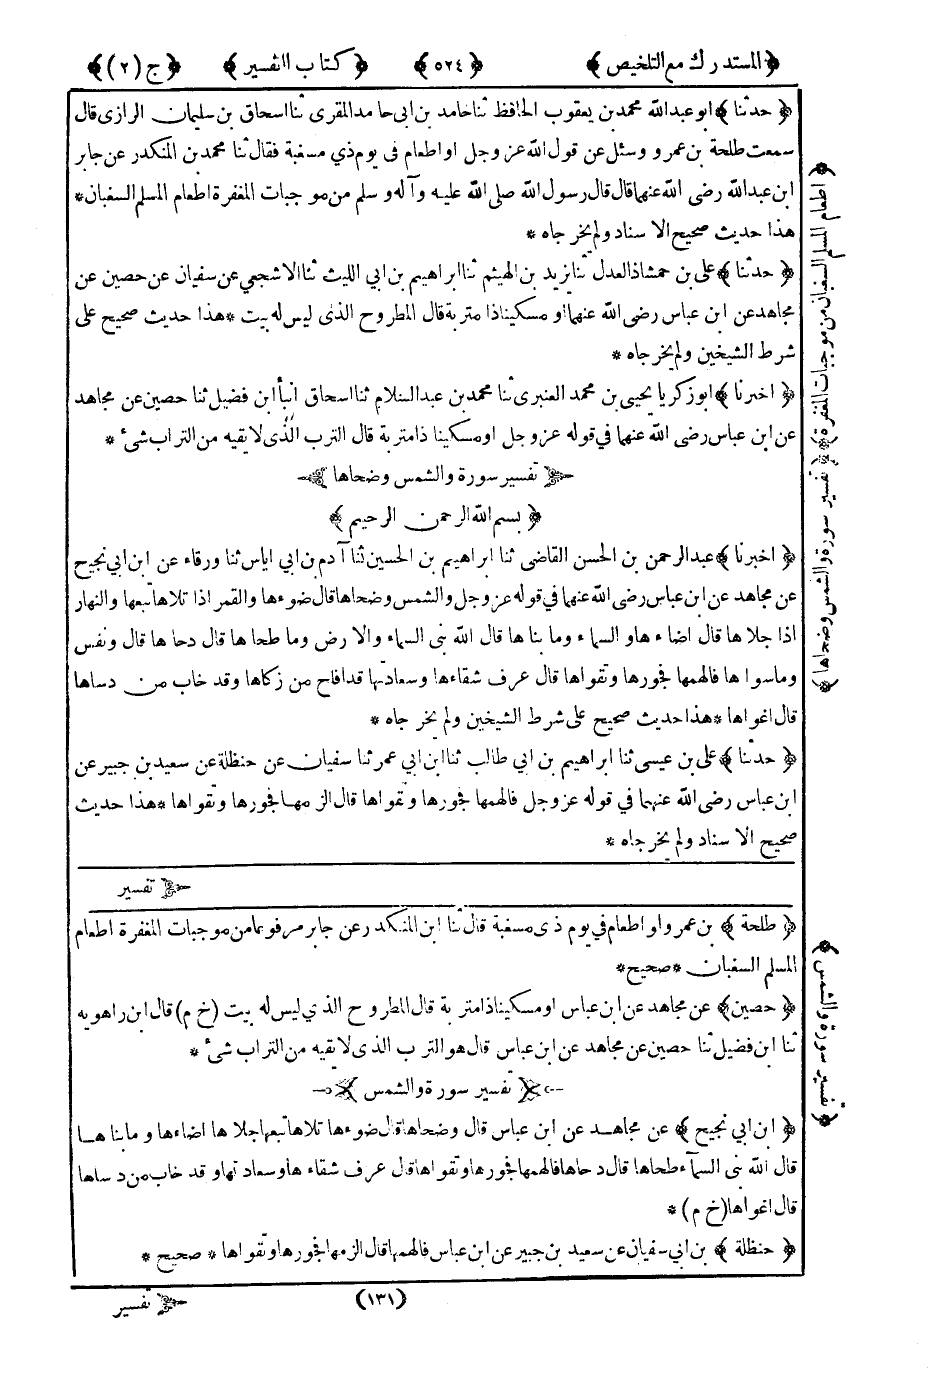 ﴿ المستدرك مع التلخيص ﴾ ﴿ ٥٢٤ ﴾ ﴿ كتاب التفسير ﴾ ﴿ ج (٢) ﴾
﴿ حدثنا ﴾ ابو عبد الله محمد بن يعقوب الحافظ ثنا حامد بن ابى حامد المقرى ثنا اسحاق بن سليمان الرازى قال
سمعت طلحة بن عمرو وسئل عن قول الله عز وجل او اطعام فى يوم ذي مسغبة فقال ثنا محمد بن المنكدر عن جابر
ابن عبد الله رضى الله عنهما قال قال رسول الله صلى الله عليه وآله وسلم من موجبات المغفرة اطعام المسلم السغبان *
هذا حديث صحيح الاسناد ولم يخرجاه *
﴿ حدثنا ﴾ على بن حمشاذ العدل ثنا يزيد بن الهيثم ثنا ابراهيم بن ابي الليث ثنا الاشجعي عن سفيان عن حصين عن
مجاهد عن ابن عباس رضى الله عنهما او مسكينا ذا متربة قال المطروح الذى ليس له بيت * هذا حديث صحيح على
شرط الشيخين ولم يخرجاه *
﴿ اخبرنا ﴾ ابو زكريا يحيى بن محمد العنبرى ثنا محمد بن عبد السلام ثنا اسحاق انبأ ابن فضيل ثنا حصين عن مجاهد
عن ابن عباس رضى الله عنهما في قوله عز وجل او مسكينا ذا متربة قال الترب الذى لا يقيه من التراب شىء *
تفسير سورة والشمس وضحاها
﴿ بسم الله الرحمن الرحيم ﴾
﴿ اخبرنا ﴾ عبد الرحمن بن الحسن القاضى ثنا ابراهيم بن الحسين ثنا آدم بن ابي اياس ثنا ورقاء عن ابن ابي نجيح
عن مجاهد عن ابن عباس رضى الله عنهما في قوله عز وجل والشمس وضحاها قال ضوءها والقمر اذا تلاها تبعها والنهار
اذا جلاها قال اضاءها والسماء وما بناها قال الله بنى السماء والارض وما طحاها قال دحاها قال ونفس
وما سواها فالهمها فجورها وتقواها قال عرف شقاءها وسعادتها قد افلح من زكاها وقد خاب من دساها
قال اغواها * هذا حديث صحيح على شرط الشيخين ولم يخرجاه *
﴿ حدثنا ﴾ على بن عيسى ثنا ابراهيم بن ابي طالب ثنا ابن ابي عمر ثنا سفيان عن حنظلة عن سعيد بن جبير عن
ابن عباس رضى الله عنهما في قوله عز وجل فالهمها فجورها وتقواها قال الزمها فجورها وتقواها * هذا حديث
صحيح الاسناد ولم يخرجاه *
تفسير
﴿ طلحة ﴾ بن عمرو او اطعام في يوم ذى مسغبة قال ثنا ابن المنكدر عن جابر مرفوعا من موجبات المغفرة اطعام
المسلم السغبان * صحيح *
﴿ حصين ﴾ عن مجاهد عن ابن عباس او مسكينا ذا متربة قال المطروح الذي ليس له بيت (خ م) قال ابن راهويه
ثنا ابن فضيل ثنا حصين عن مجاهد عن ابن عباس قال هو الترب الذى لا يقيه من التراب شىء *
تفسير سورة والشمس
﴿ ابن ابي نجيح ﴾ عن مجاهد عن ابن عباس قال وضحاها قال ضوءها تلاها تبعها جلاها اضاءها وما بناها
قال الله بنى السماء طحاها قال دحاها فالهمها فجورها وتقواها قال عرف شقاءها وسعادتها وقد خاب من دساها
قال اغواها (خ م) *
﴿ حنظلة ﴾ بن ابي سفيان عن سعيد بن جبير عن ابن عباس فالهمها قال الزمها فجورها وتقواها * صحيح *
تفسير
(١٣١)
﴿ اطعام المسلم السغبان من موجبات المغفرة ﴾
﴿ تفسير سورة والشمس وضحاها ﴾
﴿ تفسير سورة والشمس ﴾